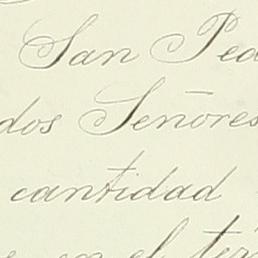 San Ped
dos Señores
cantidad
en el tér